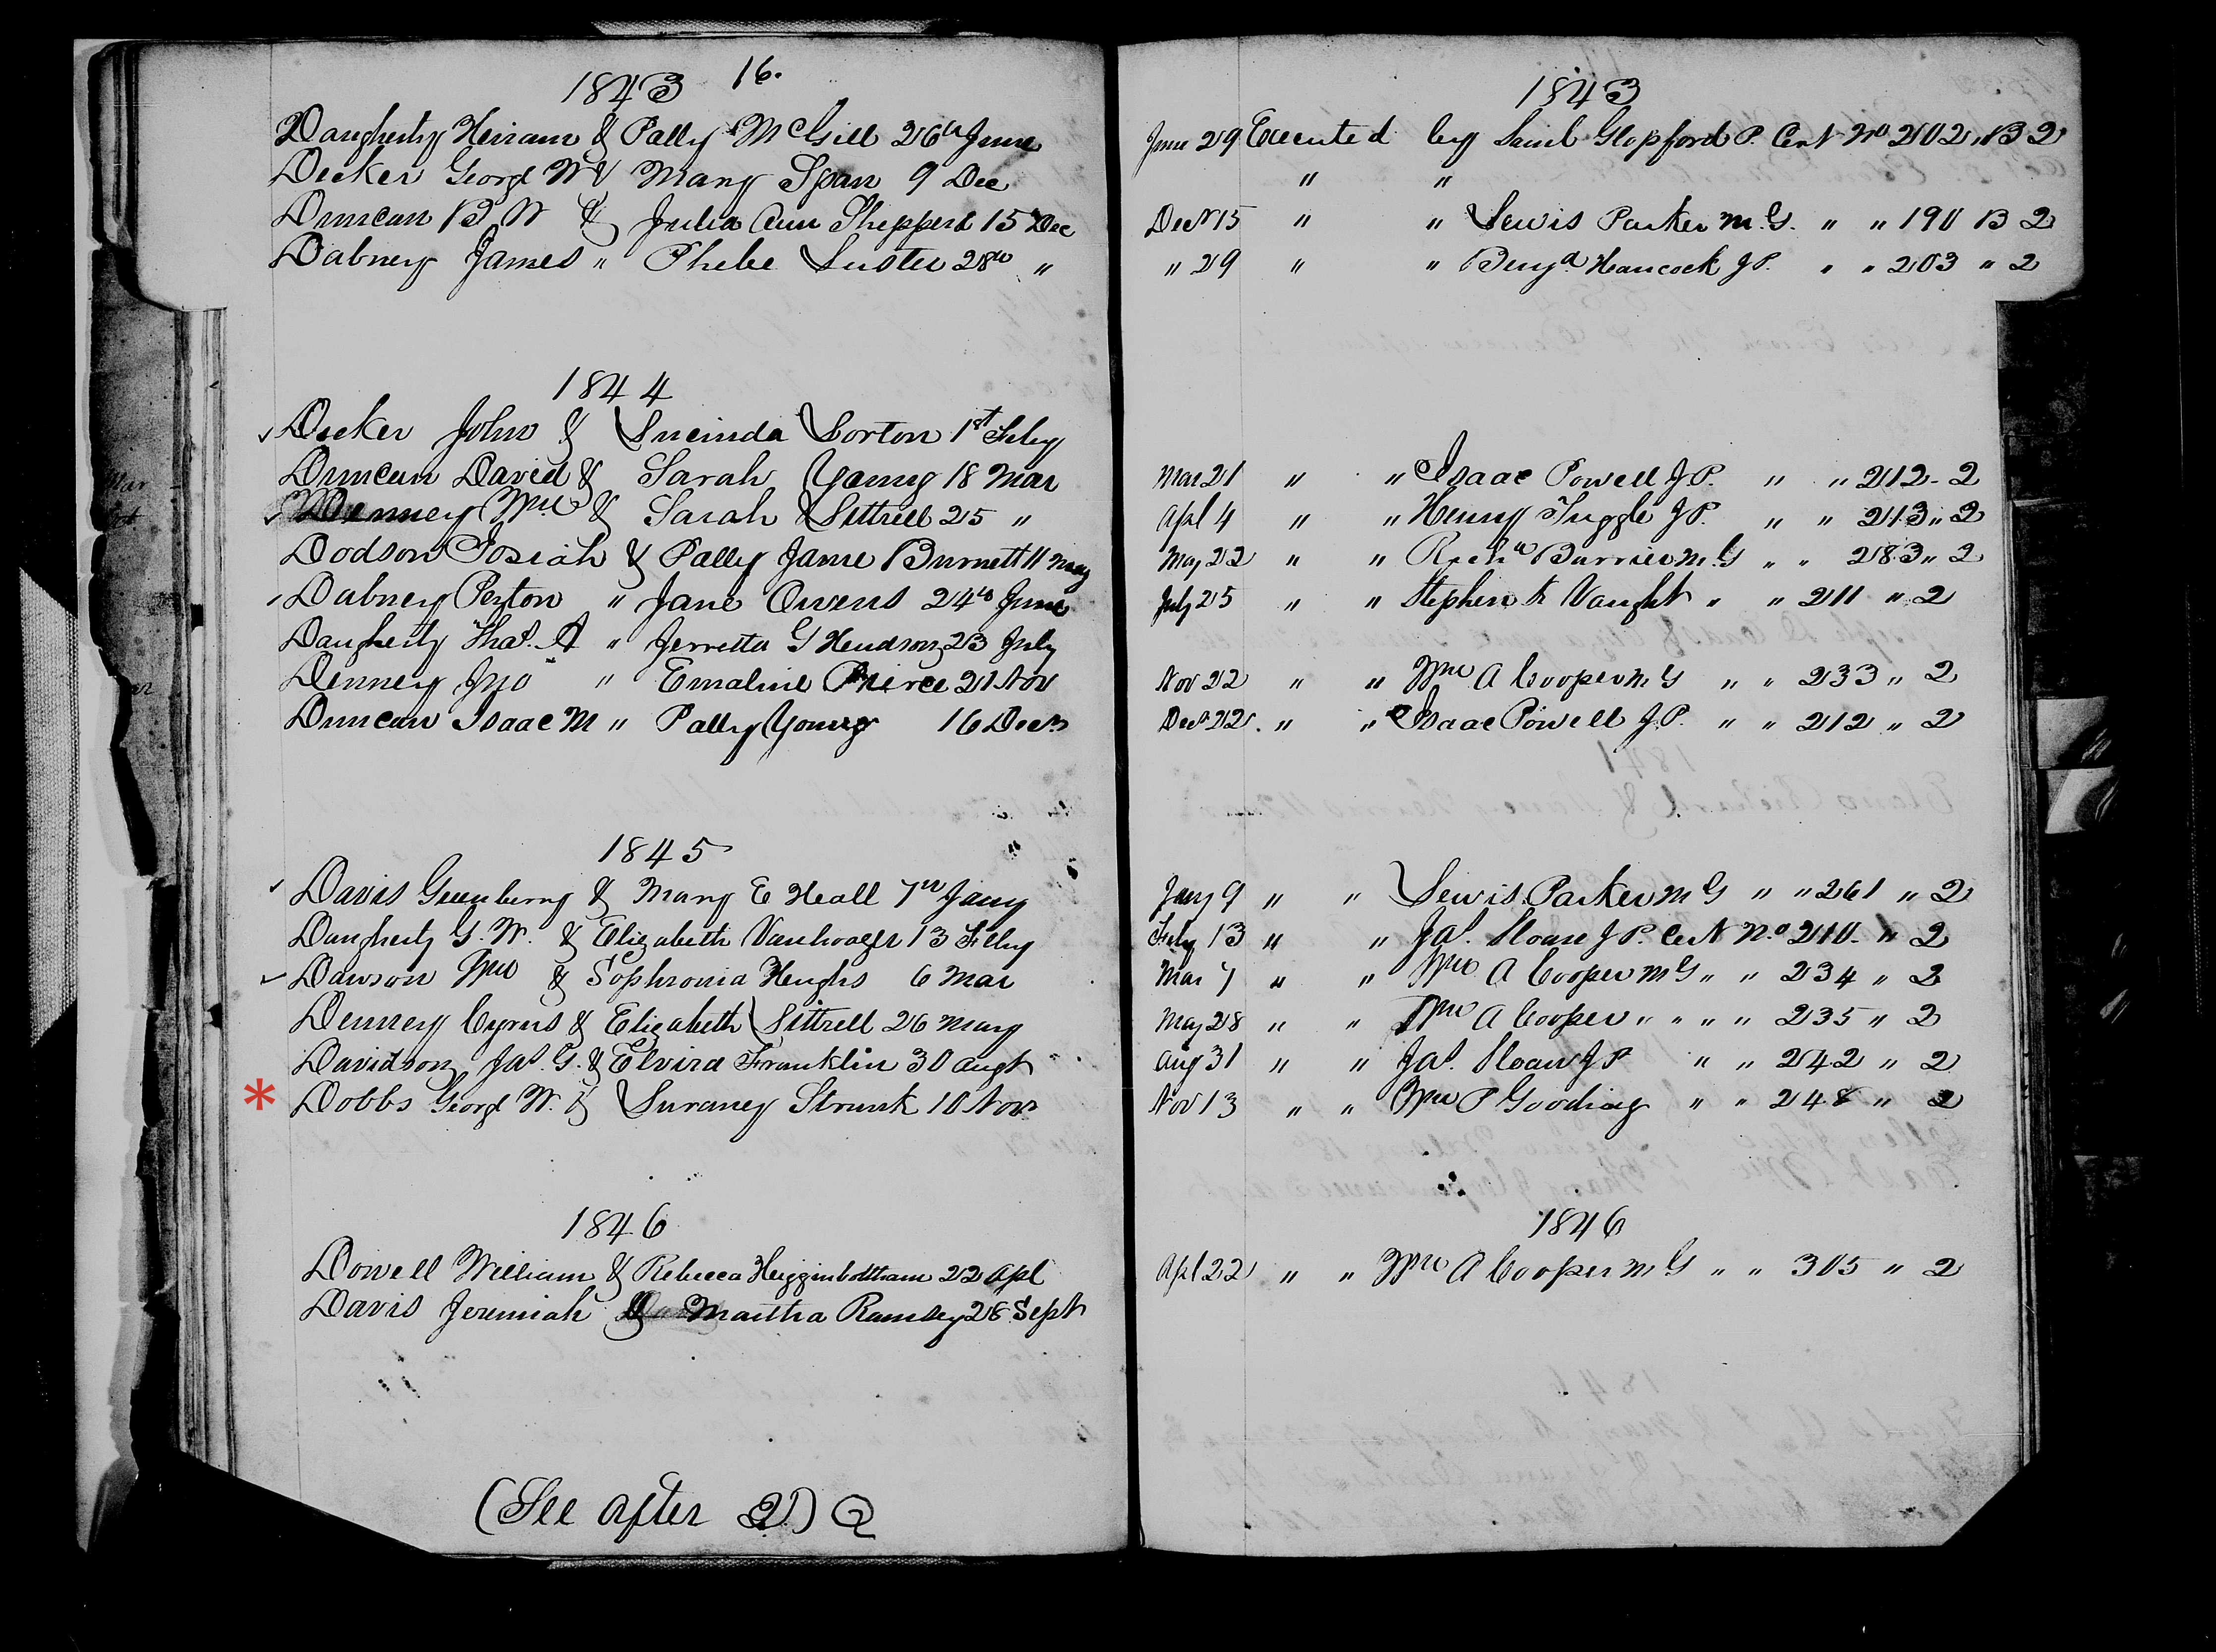 1843 16.
Daugherty Hiram & Polly McGill 26th June
Decker George W & Mary Span 9 Dec
Duncan B W & Julia Ann Shepperd 15 Dec
Dabney James " Phebe Luster 28th "
1844
Decker John & Lucinda Lorton 1st Feby
Duncan David & Sarah Young 18 Mar
Denney Wm & Sarah Littrell 25 "
Dodson Josiah & Polly Jane Burnett 11 May
Dabney Peyton " Jane Owens 24th June
Daugherty Thos. A " Jerretta G Hudson 23 July
Denney Jno " Emaline Pierce 21 Nov
Duncan Isaac M " Polly Young 16 Decr
1845
Davis Greenberry & Mary E Hall 7th Jany
Daugherty G. W. & Elizabeth Vanhoozer 13 Feby
Dawson Wm & Sophronia Hughs 6 Mar
Denney Cyrus & Elizabeth Littrell 26 May
Davidson Jas. G. & Elvira Franklin 30 Augt
* Dobbs George W. & Luraney Strunk 10 Novr
1846
Dowell William & Rebecca Higginbottham 22 Apl
Davis Jeremiah & Martha Ramsey 28 Sept
(See after Q) Q
1843
June 29 Executed by Saml P. Cert No 202, B 2
" "
Decr 15 " " Lewis Parker M.G. " " 190 B 2
" 29 " " Benja Hancock J P. " " 203 " 2
Mar 21 " " Isaac Powell J P. " " 212 - 2
Apl 4 " " Henry Tuggle J P. " " 213 " 2
May 22 " " Richd Burrier M.G " " 283 " 2
July 25 " " Stephen K Vaught " " 211 " 2
Nov 22 " " Wm A Cooper M G " " 233 " 2
Decr 22. " " Isaac Powell J.P. " " 212 " 2
Jany 9 " " Lewis Parker M G " " 261 " 2
Feby 13 " " Jas. Sloan J P. Cert No 210 - " 2
Mar 7 " " Wm A Cooper M G " " 234 " 2
May 28 " " Wm A Cooper " " " " 235 " 2
Aug 31 " " Jas. Sloan J P " " 242 " 2
Nov 13 " " Wm P Gooding " " 248 " 2
1846
Apl 22 " " Wm A Cooper M G " " 305 " 2